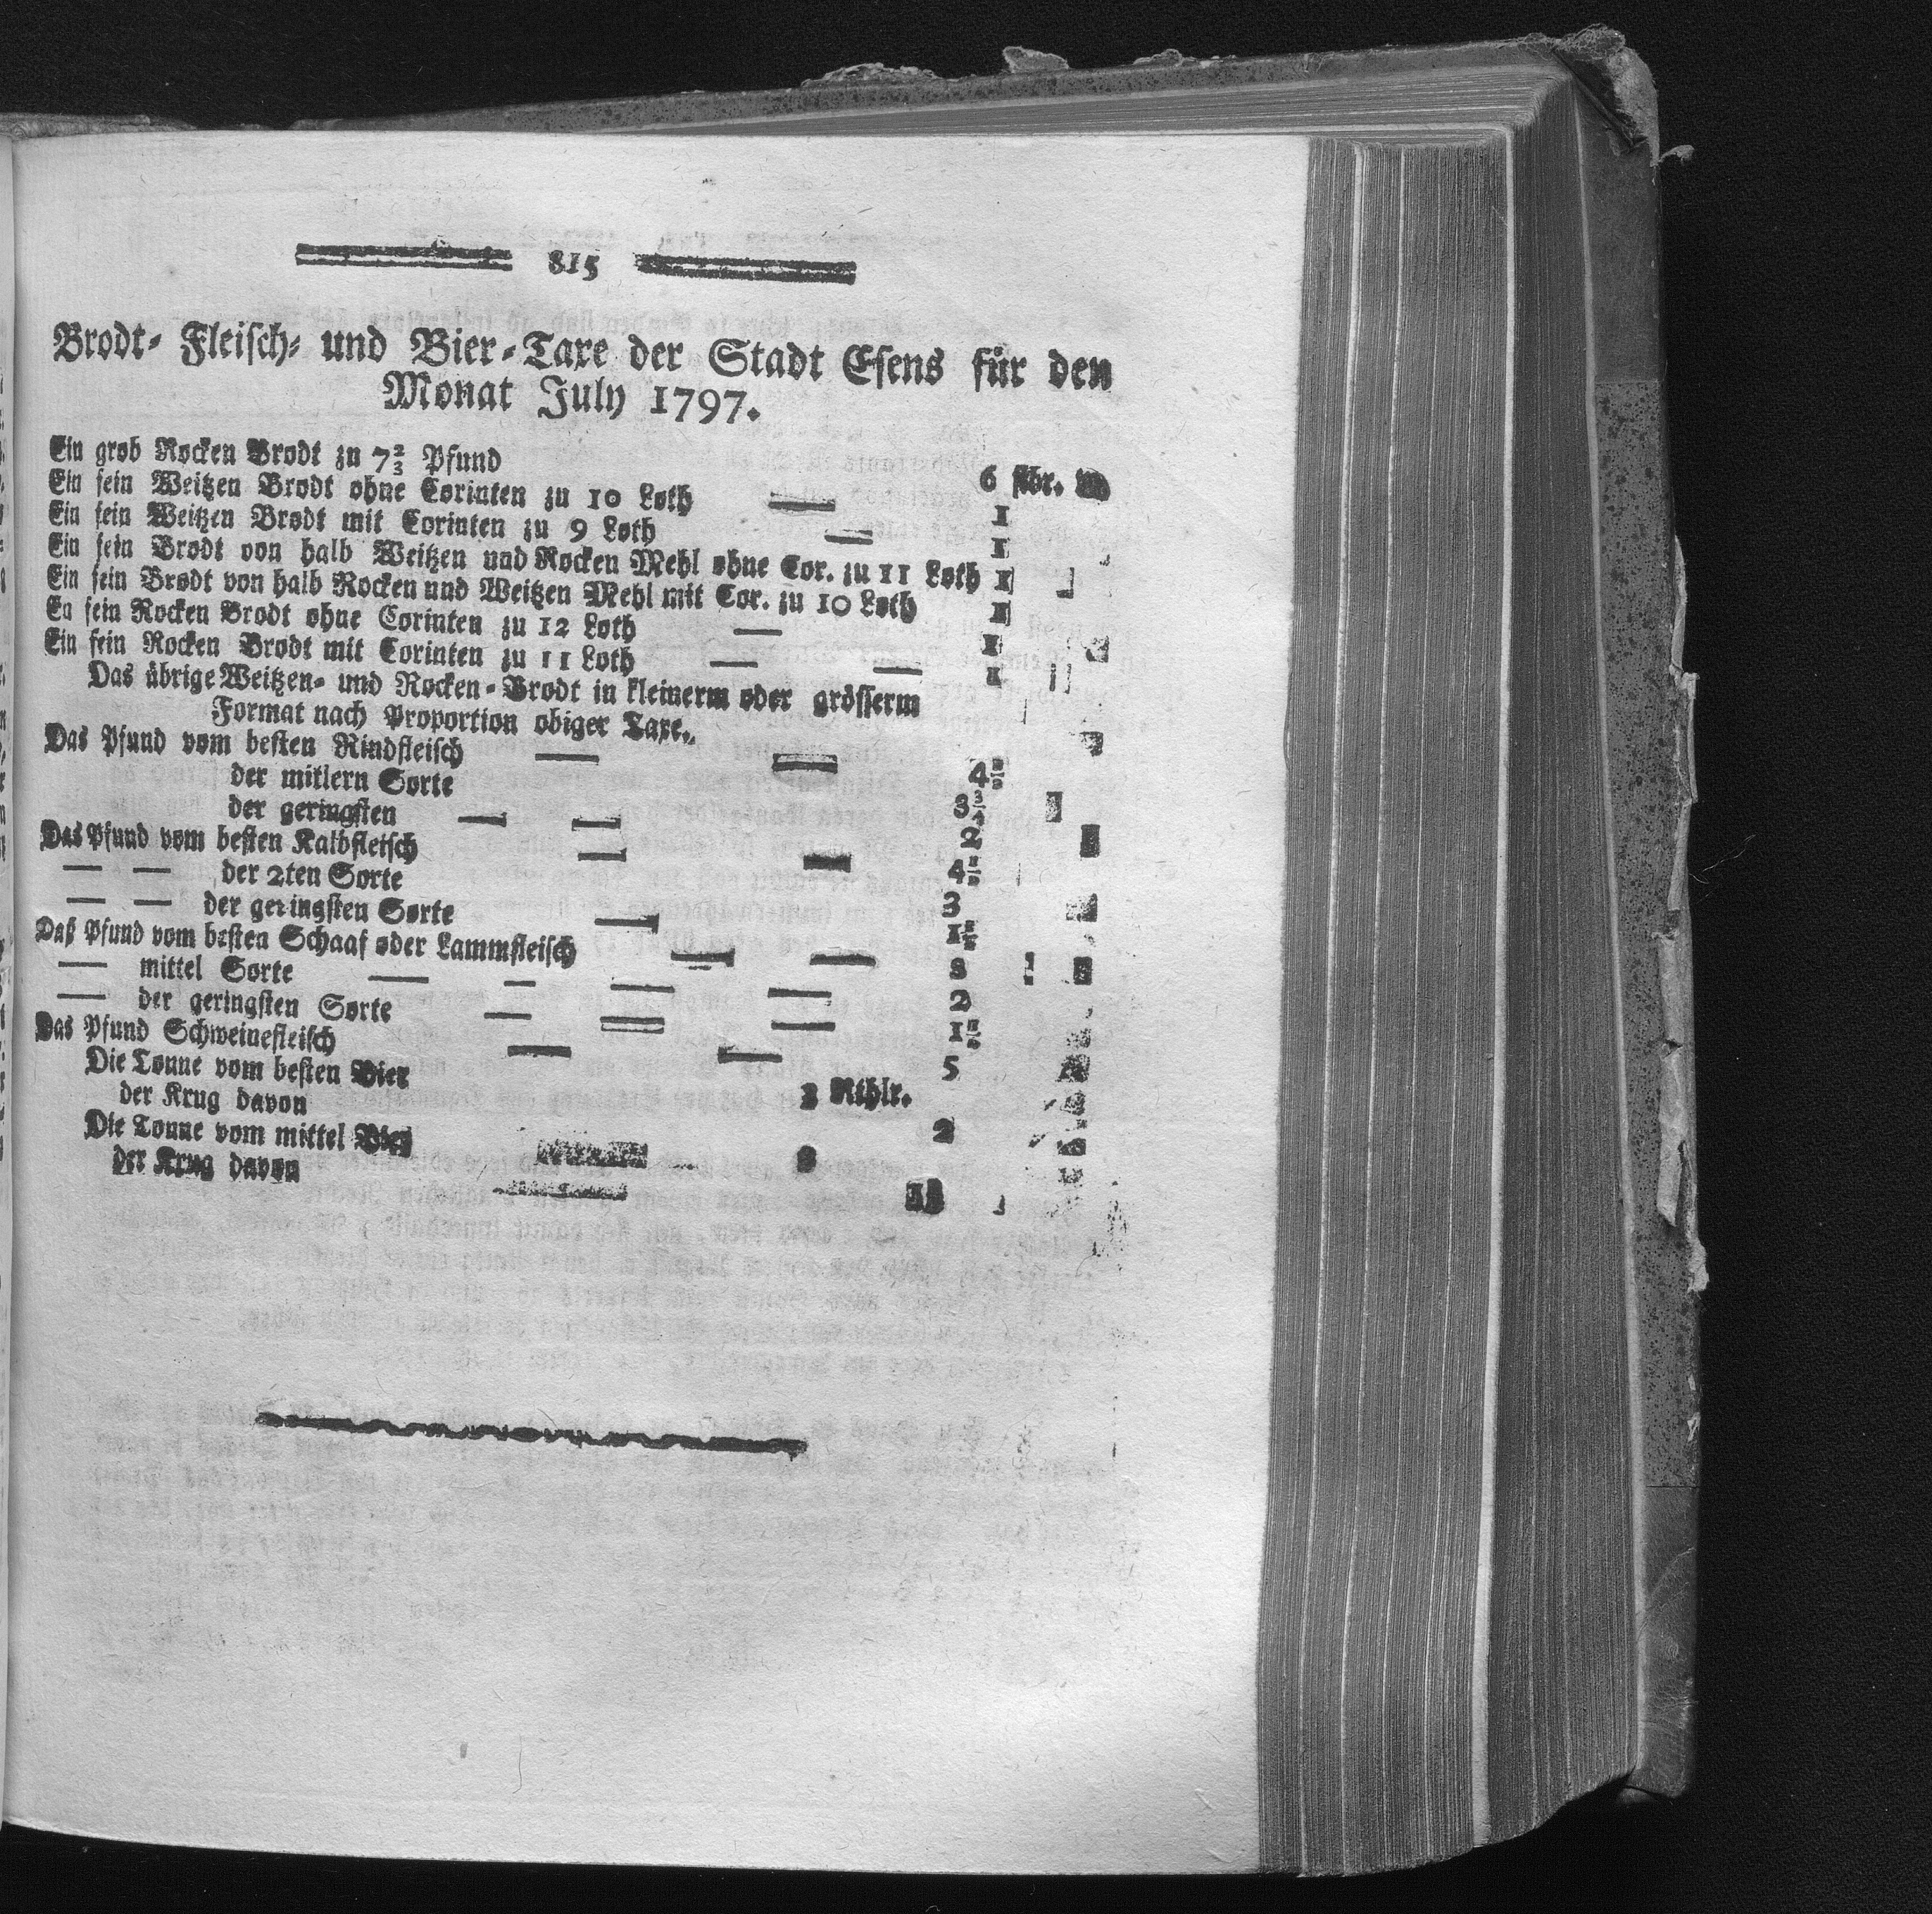 815
Brodt- Fleisch- und Bier-Taxe der Stadt Esens für den
Monat July 1797.
Ein grob Rocken Brodt zu 7⅔ Pfund 6 stbr.
Ein fein Weitzen Brodt ohne Corinten zu 10 Loth — 1
Ein fein Weitzen Brodt mit Corinten zu 9 Loth — 1
Ein fein Brodt von halb Weitzen und Rocken Mehl ohne Cor. zu 11 Loth 1
Ein fein Brodt von halb Rocken und Weitzen Mehl mit Cor. zu 10 Loth 1
En fein Rocken Brodt ohne Corinten zu 12 Loth — 1
Ein fein Rocken Brodt mit Corinten zu 11 Loth — — 1
Das übrige Weitzen- und Rocken-Brodt in kleinerm oder grösserm
Format nach Proportion obiger Taxe.
Das Pfund vom besten Rindfleisch — — 4½
der mitlern Sorte 3¾
der geringsten — — 2
Das Pfund vom besten Kalbfleisch — — 4½
— — der 2ten Sorte 3
— — der geringsten Sorte — 1½
Daß Pfund vom besten Schaaf oder Lammfleisch — — 3
— mittel Sorte — — — — 2
— der geringsten Sorte — — — 1½
Das Pfund Schweinefleisch — — 5
Die Tonne vom besten Bier 3 Rthlr.
der Krug davon 2
Die Tonne vom mittel Bier
der Krug davon